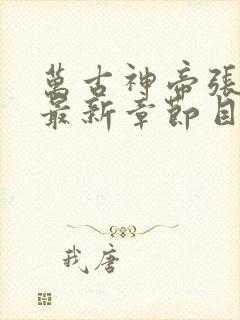 萬古神帝張
最新章節目
我唐